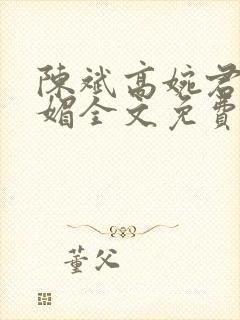 陳斌高婉君
媚全文免費
董父